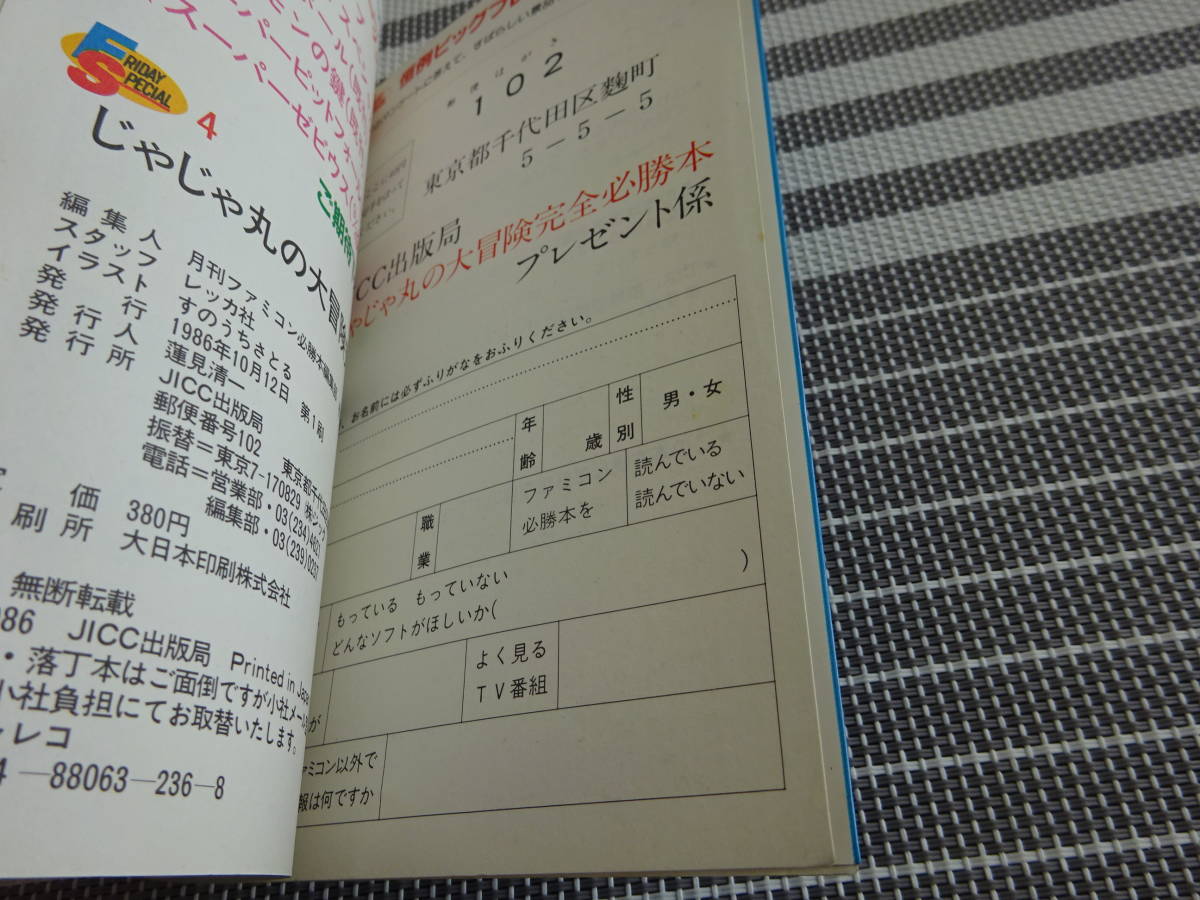 ール(
ンの鍵(
ーパーピットフォ
スーパーゼビウス(
ご期待
FS
FRIDAY
SPECIAL
4
じゃじゃ丸の大冒険
編集人 月刊ファミコン必勝本編集部
スタッフ レッカ社
イラスト すのうちさとる
発行 1986年10月12日 第1刷
発行人 蓮見清一
発行所 JICC出版局
郵便番号102 東京都千代田
振替=東京7-170829 ㈱ジ
電話=営業部・03(234)4621
編集部・03(239)0237
価 380円
刷所 大日本印刷株式会社
無断転載
986 JICC出版局 Printed in Japan
・落丁本はご面倒ですが小社
小社負担にてお取替いたします。
レコ
4-88063-236-8
恒例ビッグプレ
に答えて、すばらしい景品
郵便はがき
102
東京都千代田区麴町
5-5-5
ICC出版局
ゃじゃ丸の大冒険完全必勝本
プレゼント係
お名前には必ずふりがなをおふりください。
年齢 歳 性別 男・女
職業 ファミコン必勝本を 読んでいる 読んでいない
もっている もっていない
どんなソフトがほしいか( )
が よく見るTV番組
ァミコン以外で
報は何ですか